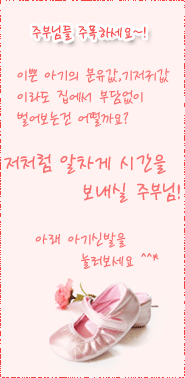 주부님들 주목하세요~!
이쁜 아기의 분유값,기저귀값
이라도 집에서 부담없이
벌어보는건 어떨까요?
저처럼 알차게 시간을
보내실 주부님!
아래 아기신발을
눌러보세요 ^^*